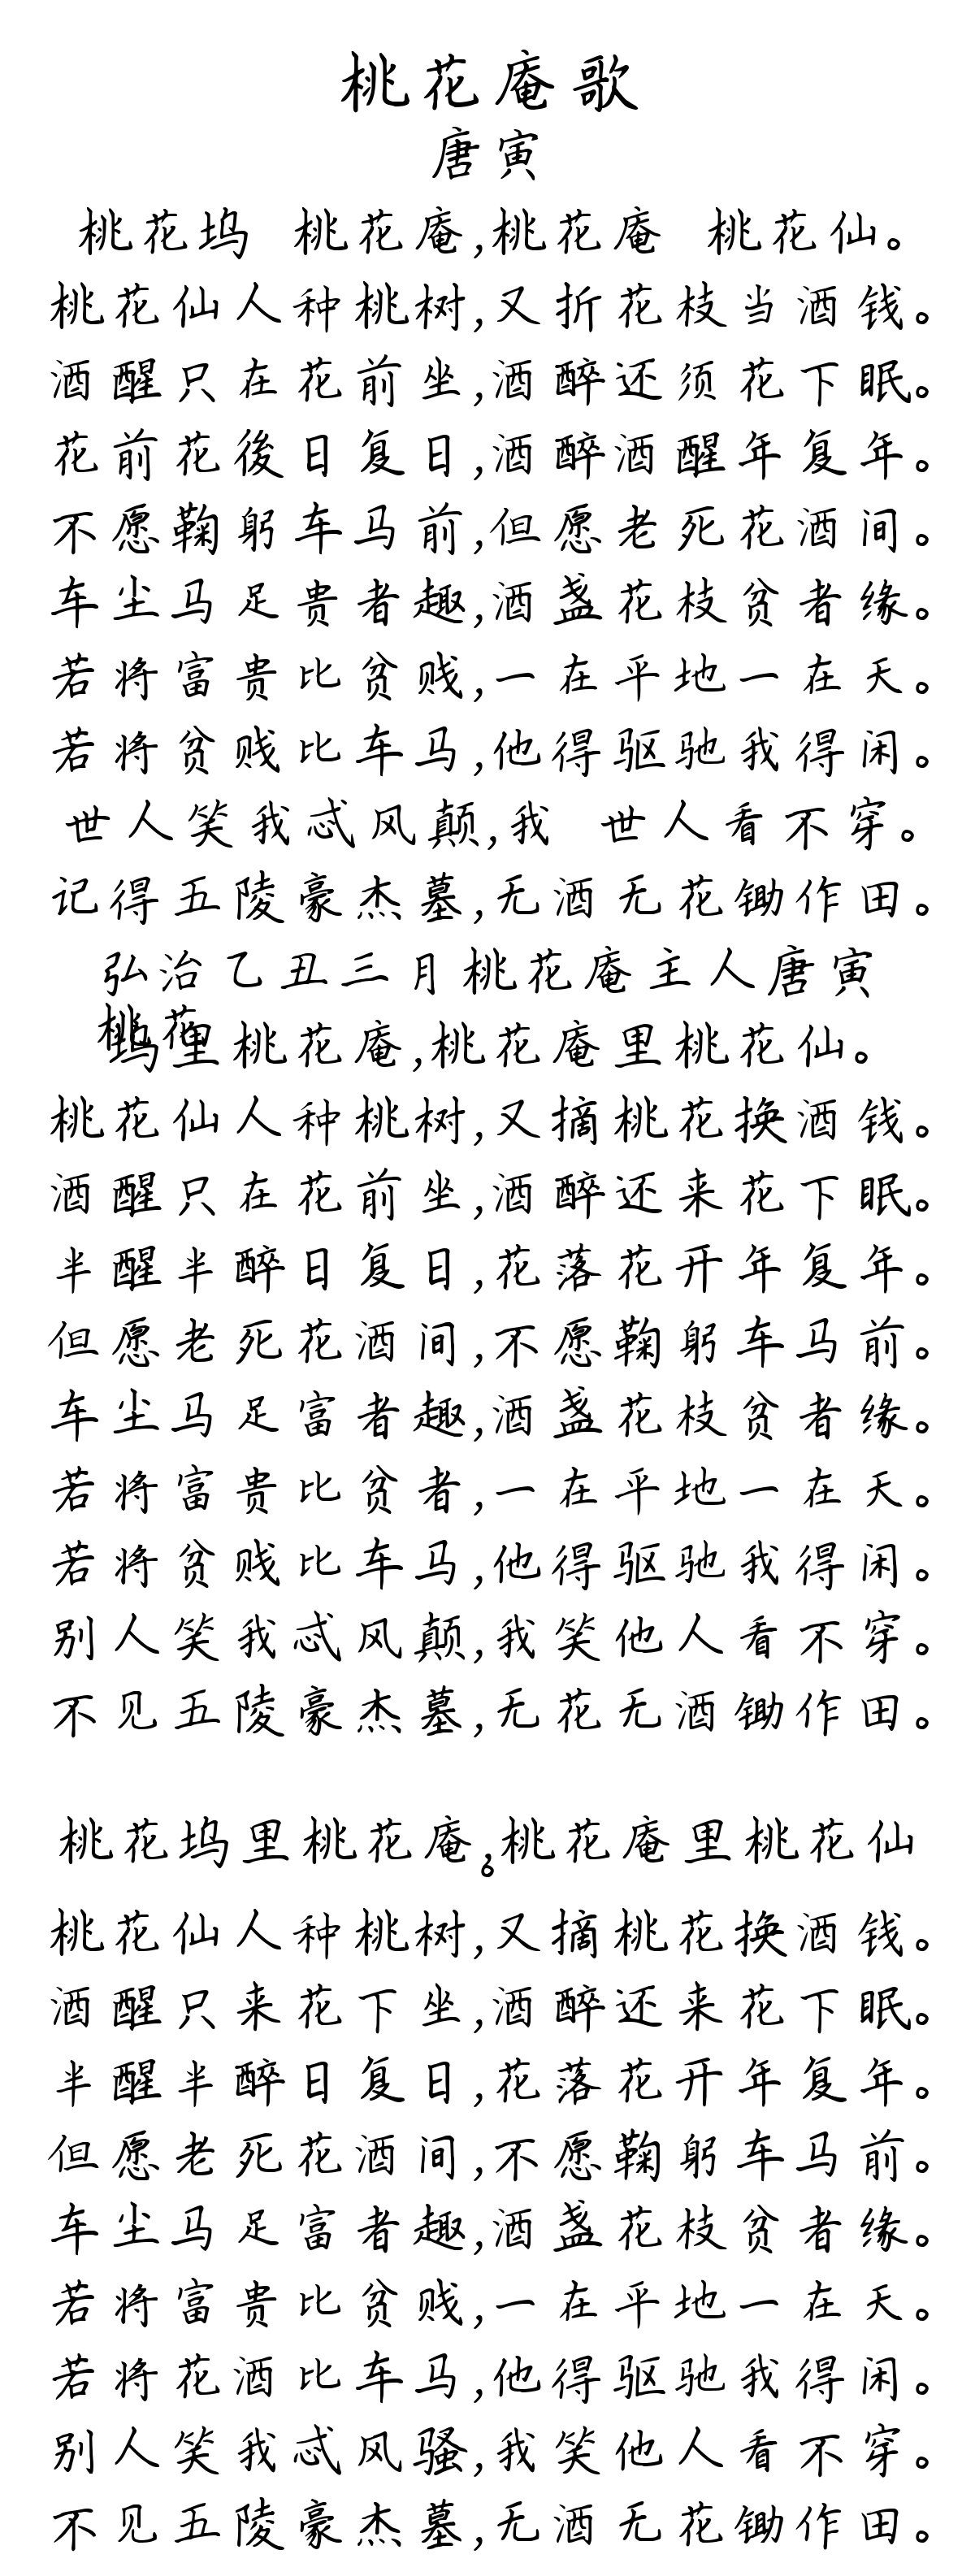 桃花庵歌
唐寅
桃花坞 桃花庵,桃花庵 桃花仙。
桃花仙人种桃树,又折花枝当酒钱。
酒醒只在花前坐,酒醉还须花下眠。
花前花後日复日,酒醉酒醒年复年。
不愿鞠躬车马前,但愿老死花酒间。
车尘马足贵者趣,酒盏花枝贫者缘。
若将富贵比贫贱,一在平地一在天。
若将贫贱比车马,他得驱驰我得闲。
世人笑我忒风颠,我 世人看不穿。
记得五陵豪杰墓,无酒无花锄作田。
弘治乙丑三月桃花庵主人唐寅
桃花
坞里桃花庵,桃花庵里桃花仙。
桃花仙人种桃树,又摘桃花换酒钱。
酒醒只在花前坐,酒醉还来花下眠。
半醒半醉日复日,花落花开年复年。
但愿老死花酒间,不愿鞠躬车马前。
车尘马足富者趣,酒盏花枝贫者缘。
若将富贵比贫者,一在平地一在天。
若将贫贱比车马,他得驱驰我得闲。
别人笑我忒风颠,我笑他人看不穿。
不见五陵豪杰墓,无花无酒锄作田。
桃花坞里桃花庵,桃花庵里桃花仙
。
桃花仙人种桃树,又摘桃花换酒钱。
酒醒只来花下坐,酒醉还来花下眠。
半醒半醉日复日,花落花开年复年。
但愿老死花酒间,不愿鞠躬车马前。
车尘马足富者趣,酒盏花枝贫者缘。
若将富贵比贫贱,一在平地一在天。
若将花酒比车马,他得驱驰我得闲。
别人笑我忒风骚,我笑他人看不穿。
不见五陵豪杰墓,无酒无花锄作田。